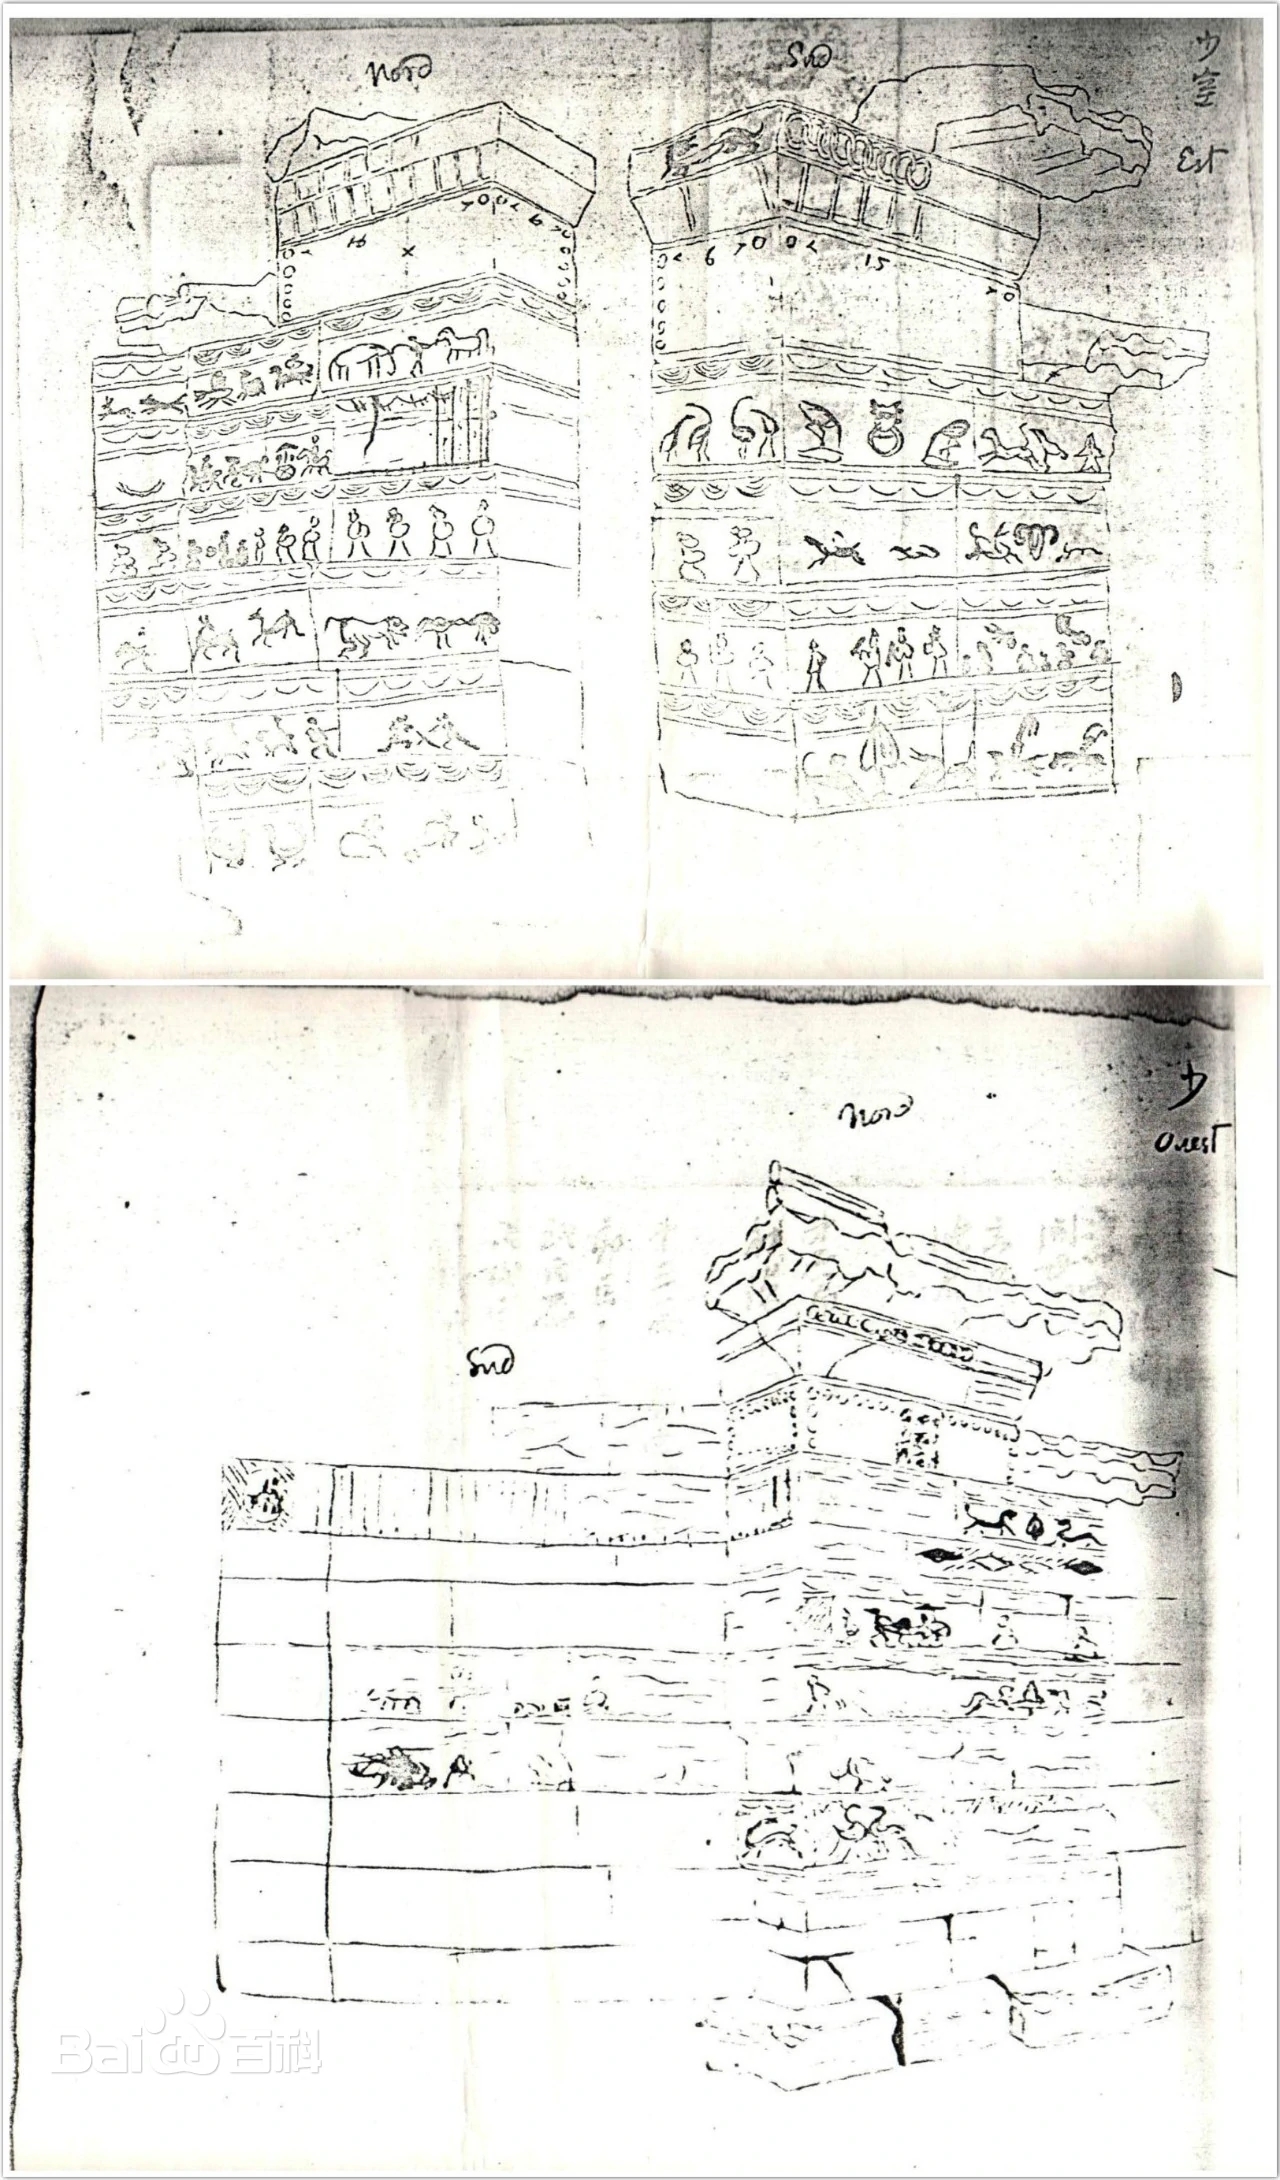 Nord
Sud
少室
Est
6
15
少
Ouest
Nord
Sud
Bai百科